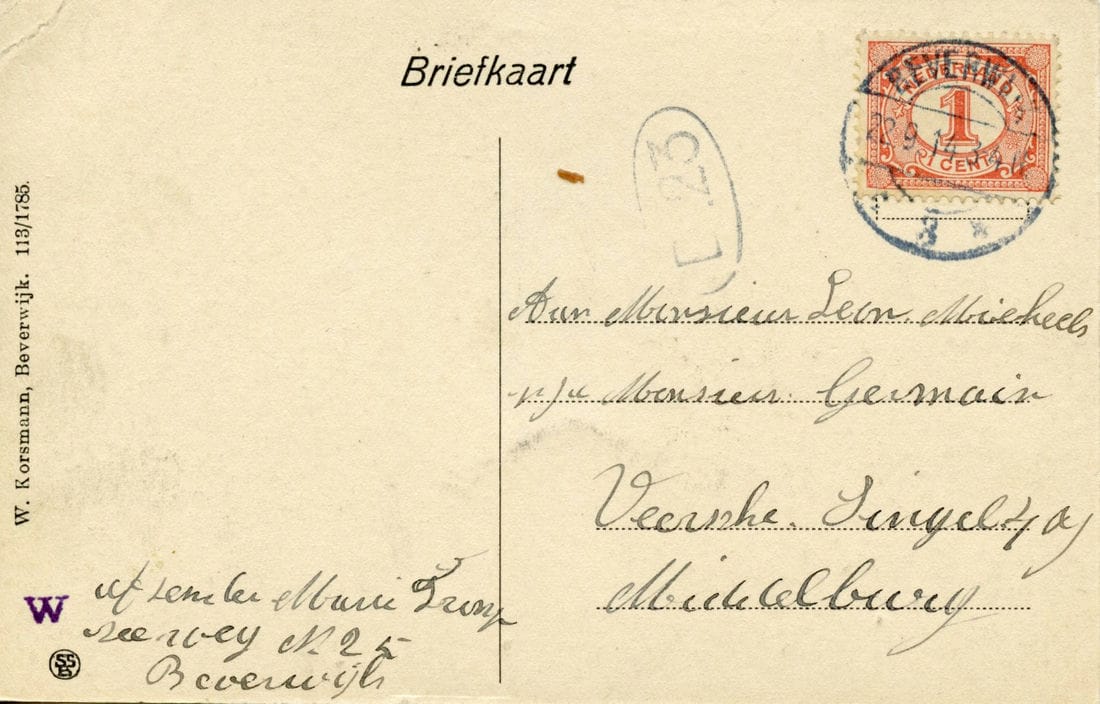 Briefkaart
NEDERLAND
1
1 CENT
BEVERWIJK
9.14
E 23
Aan Monsieur Leon Micheels
p/a Monsieur Germain
Veersche Singel
Middelburg
W. Korsmann, Beverwijk. 113/1785.
W
afzender Marie
Zeeweg N. 25
Beverwijk